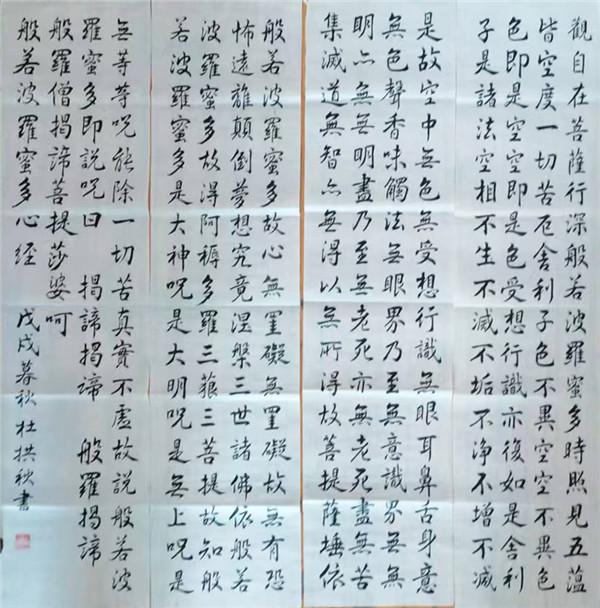 觀自在菩薩行深般若波羅蜜多時照見五蘊
皆空度一切苦厄舍利子色不異空空不異色
色即是空空即是色受想行識亦復如是舍利
子是諸法空相不生不滅不垢不净不增不減
是故空中無色無受想行識無眼耳鼻舌身意
無色聲香味觸法無眼界乃至無意識界無無
明亦無無明盡乃至無老死亦無老死盡無苦
集滅道無智亦無得以無所得故菩提薩埵依
般若波羅蜜多故心無罣礙無罣礙故無有恐
怖遠離顛倒夢想究竟涅槃三世諸佛依般若
波羅蜜多故得阿耨多羅三藐三菩提故知般
若波羅蜜多是大神呪是大明呪是無上呪是
無等等呪能除一切苦真實不虛故説般若波
羅蜜多即説呪曰 揭諦揭諦 般羅揭諦
般羅僧揭諦菩提莎婆呵
般若波羅蜜多心经 戊戌暮秋杜拱秋書